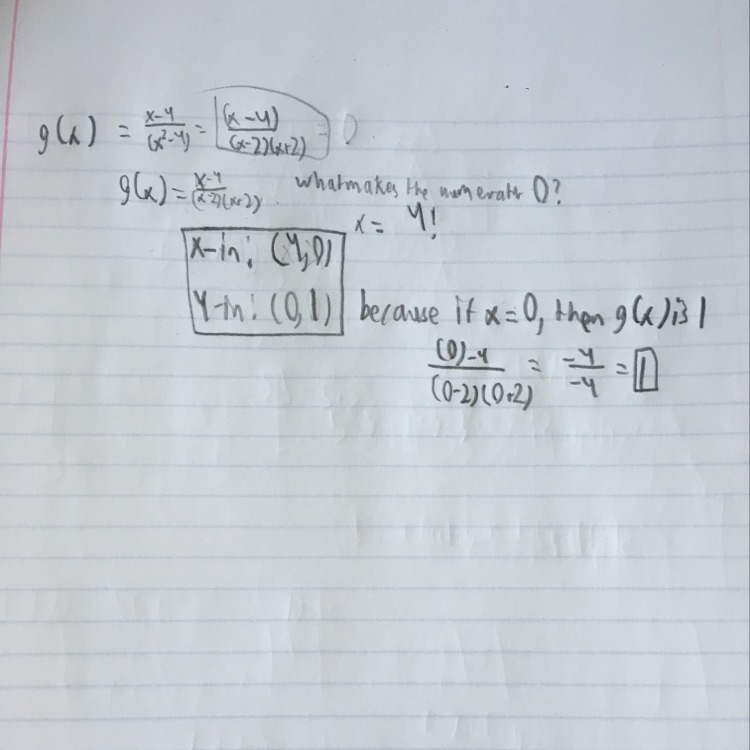 g(x) = x-4/(x²-4) = (x-4)/(x-2)(x+2) = 0
g(x) = x-4/(x-2)(x+2). what makes the numerater 0?
x = 4!
x-in: (4,0)
Y-in: (0,1) because if x=0, then g(x) is 1
(0)-4/(0-2)(0+2) = -4/-4 = 1